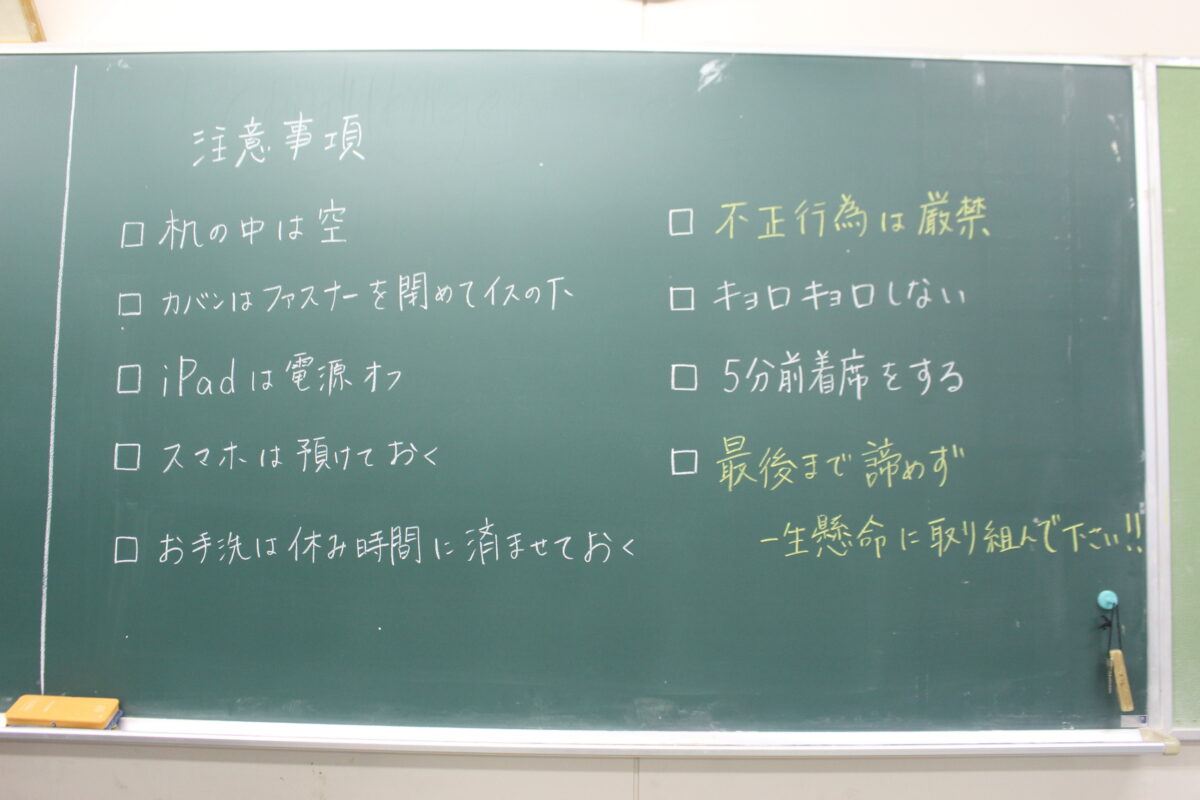 注意事項
□ 机の中は空
□ カバンはファスナーを閉めてイスの下
□ iPadは電源オフ
□ スマホは預けておく
□ お手洗は休み時間に済ませておく
□ 不正行為は厳禁
□ キョロキョロしない
□ 5分前着席をする
□ 最後まで諦めず
一生懸命に取り組んで下さい!!